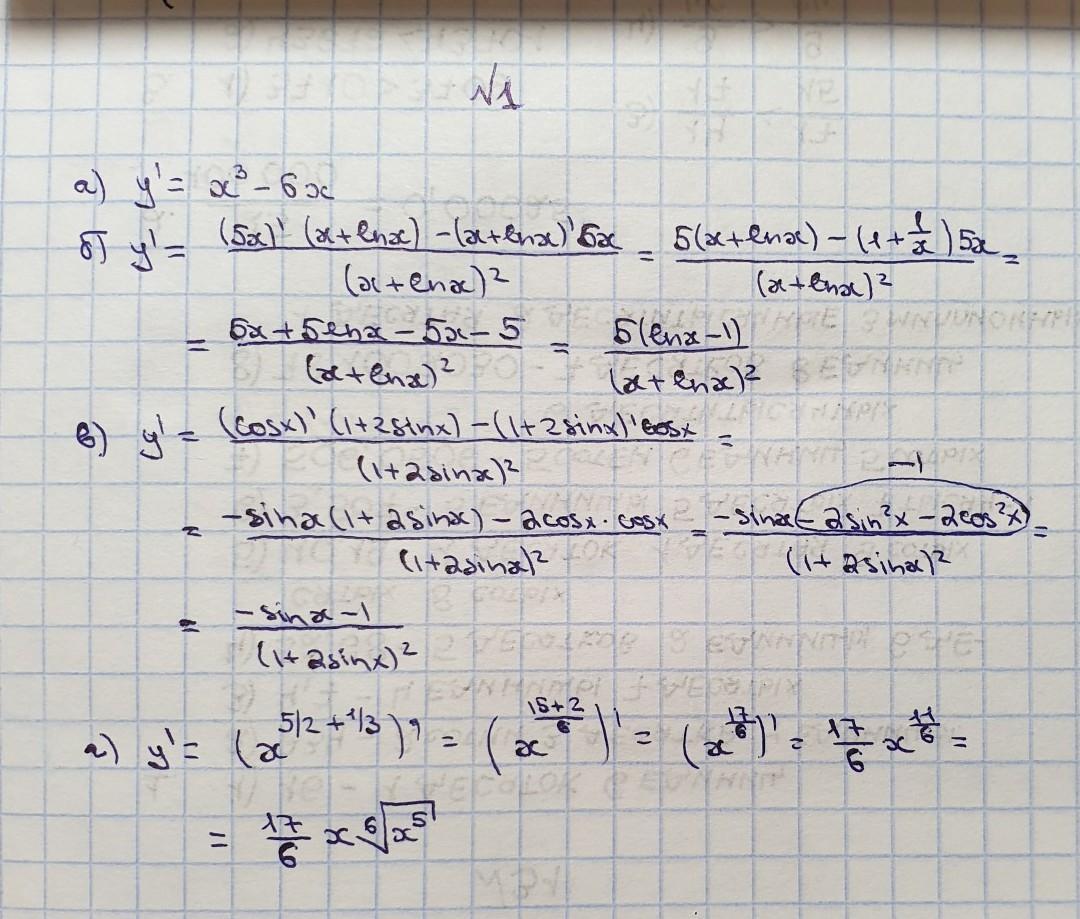 №1
а) y' = x³ - 6x
б) y' = \frac{(5x)' (x+lnx) - (x+lnx)' 5x}{(x+lnx)²} = \frac{5(x+lnx) - (1+\frac{1}{x}) 5x}{(x+lnx)²} =
= \frac{5x + 5lnx - 5x - 5}{(x+lnx)²} = \frac{5(lnx-1)}{(x+lnx)²}
в) y' = \frac{(cosx)' (1+2sinx) - (1+2sinx)' cosx}{(1+2sinx)²} =
-1
= \frac{-sinx(1+2sinx) - 2cosx · cosx}{(1+2sinx)²} = \frac{-sinx - 2sin²x - 2cos²x}{(1+2sinx)²} =
= \frac{-sinx - 1}{(1+2sinx)²}
г) y' = (x^{5/2 + 1/3})' = (x^{\frac{15+2}{6}})' = (x^{\frac{17}{6}})' = \frac{17}{6} x^{\frac{11}{6}} =
= \frac{17}{6} x \sqrt[6]{x⁵}